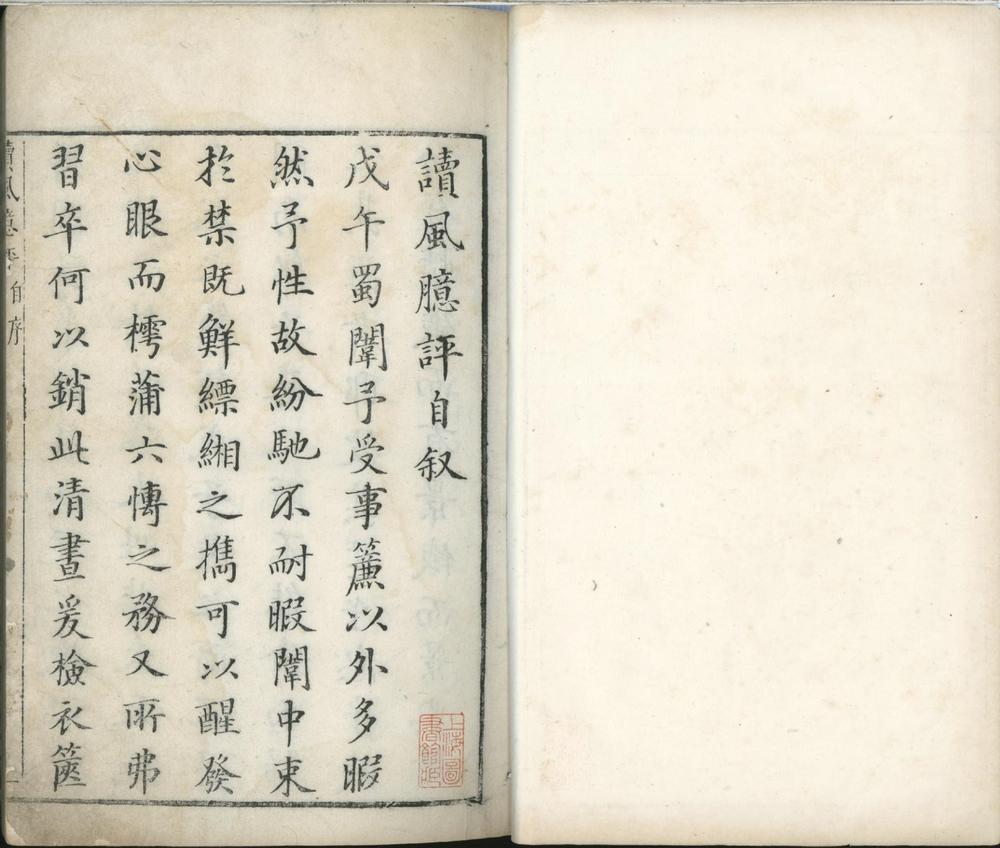 讀風臆評自叙
戊午蜀闈予受事簾以外多暇
然予性故紛馳不耐暇闈中束
於禁既鮮縹緗之攜可以醒發
心眼而樗蒲六慱之務又所弗
習卒何以銷此清晝爰檢衣篋
讀風臆評自序
上海圖書館藏